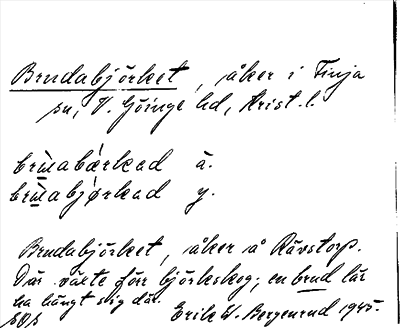 Brudabjörket, åker i Finja
sn, V. Göinge hd, Krist. l.
brùmabǽrkad ä.
brùmabjǿrkad y.
Brudabjörket, åker å Rävstorp.
Där växte förr björkskog; en brud lär
ha hängt sig där.
Erik W. Bergenrud 1945.